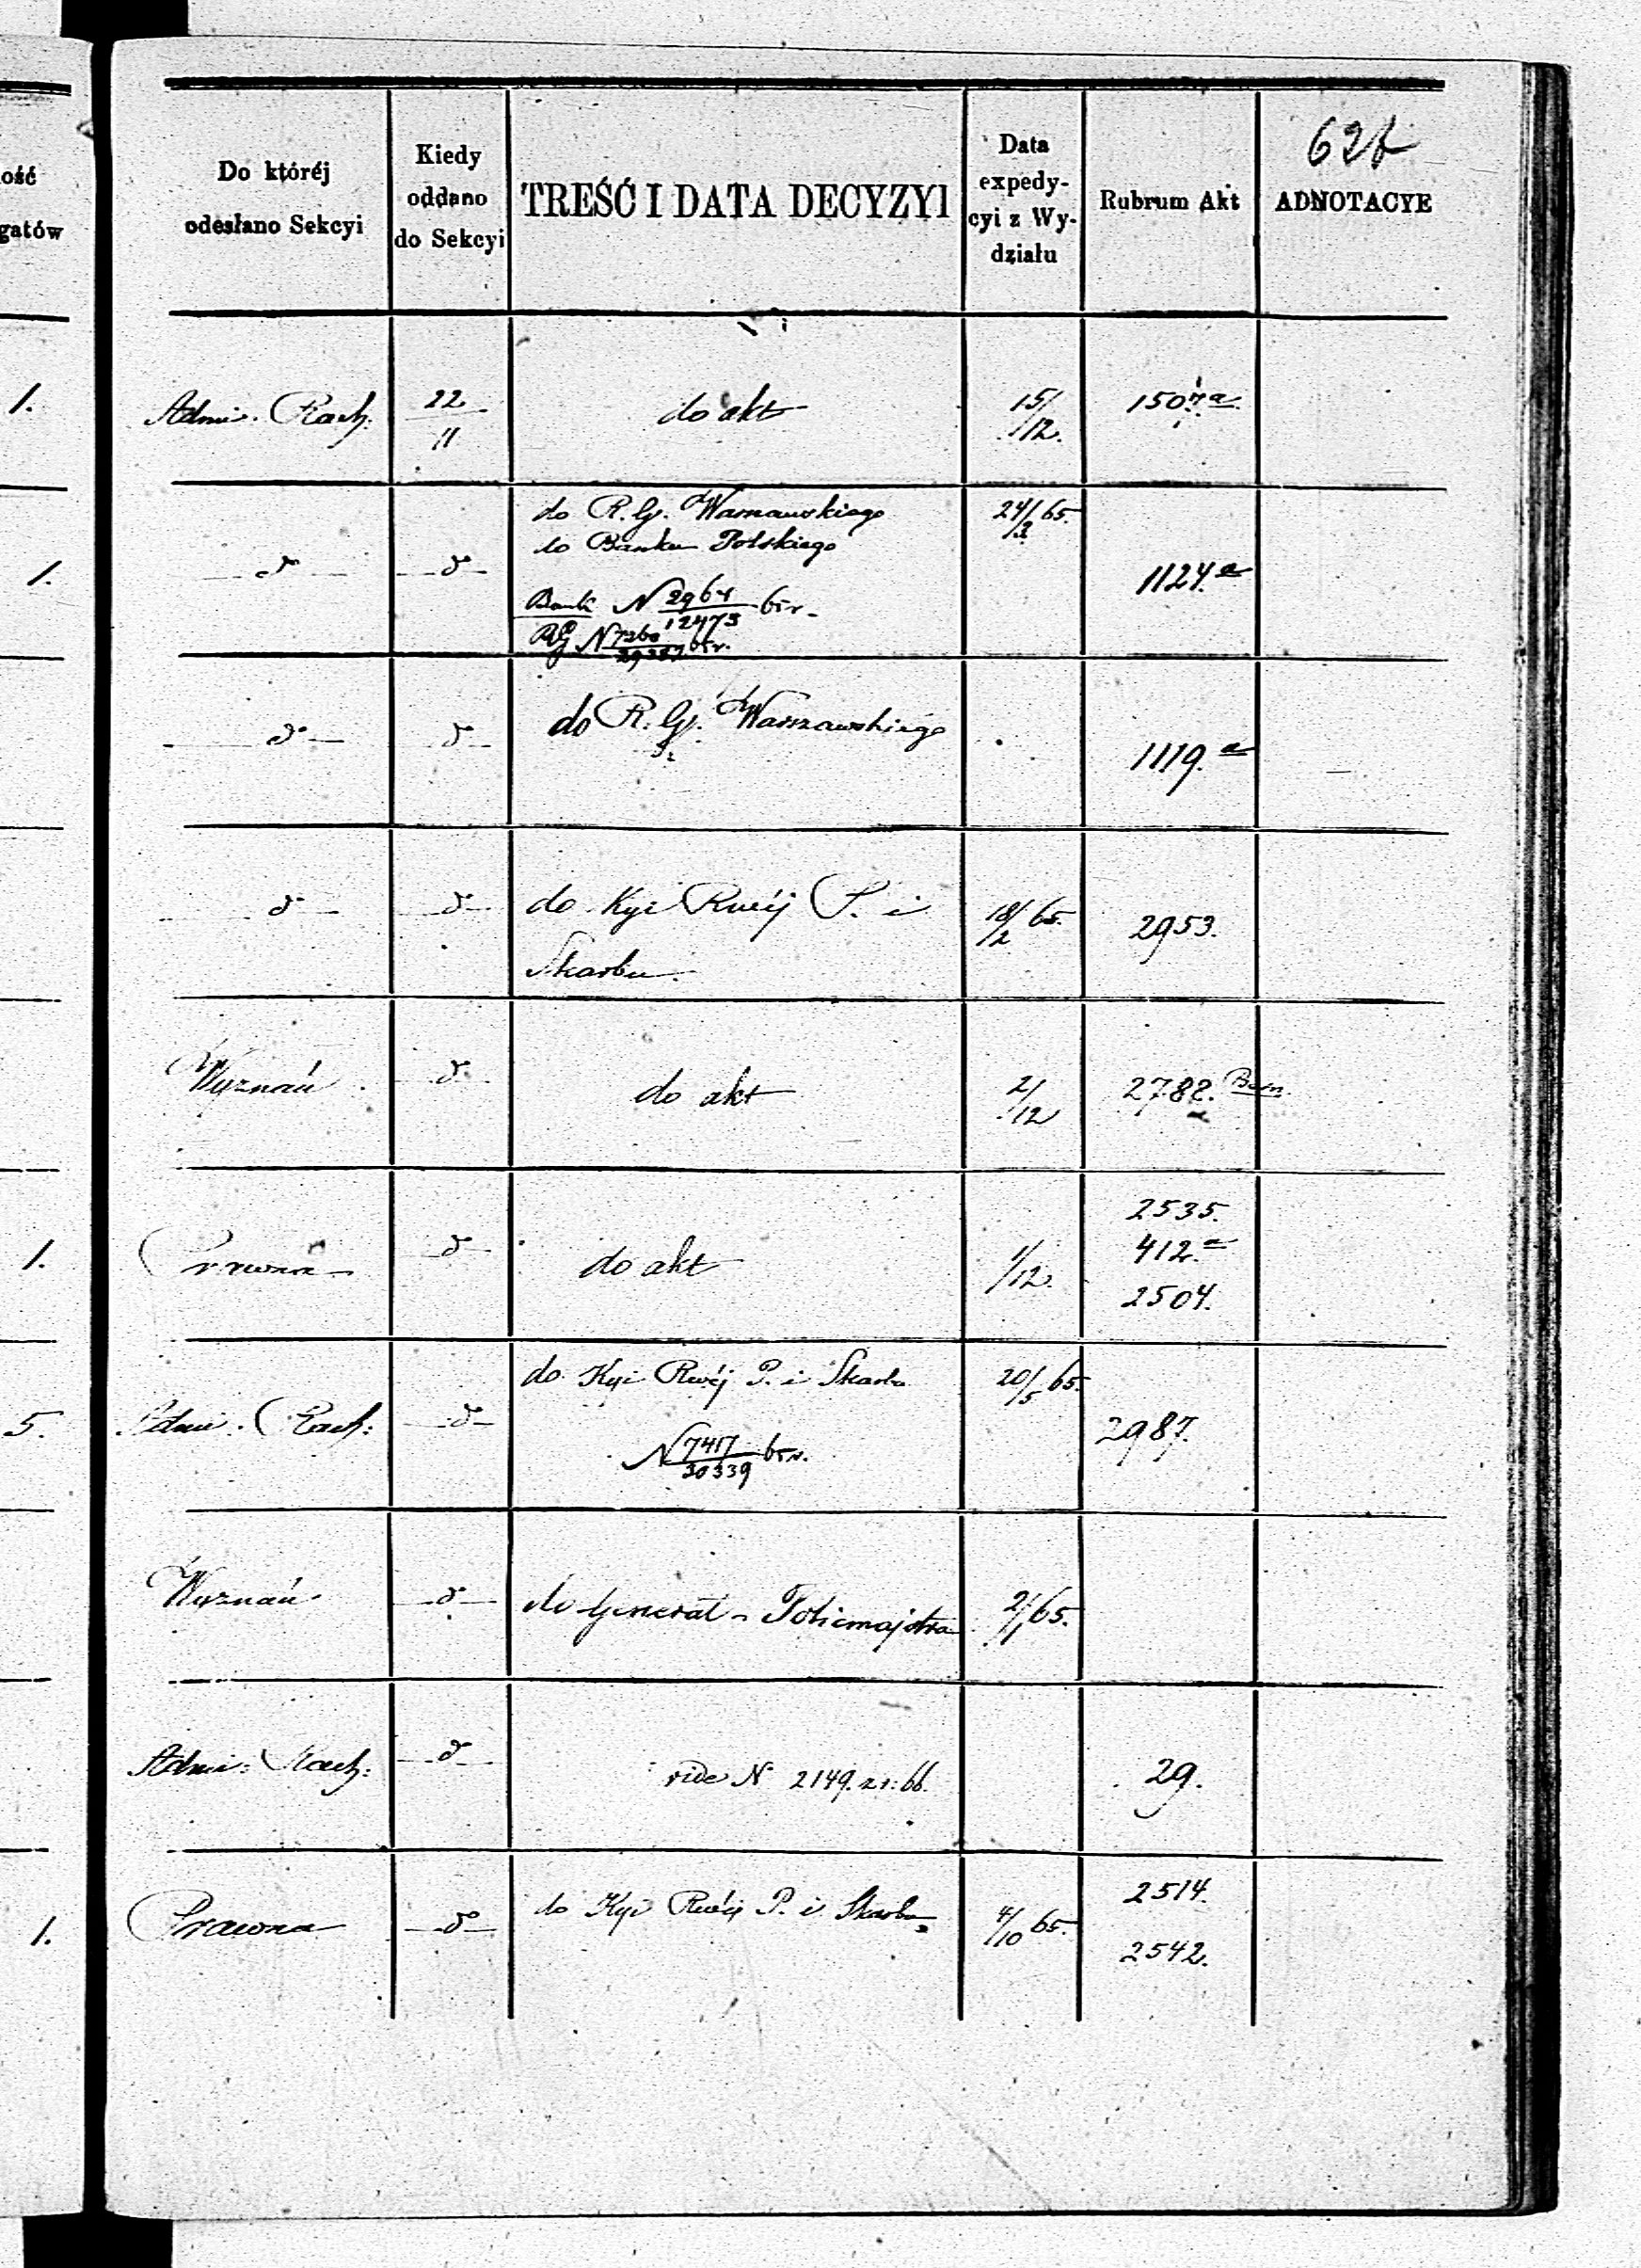 ość
gatów
Do któréj
odesłano Sekcyi
Kiedy
oddano
do Sekcyi
TREŚĆ I DATA DECYZYI
Data
expedy-
cyi z Wy-
działu
Rubrum Akt
ADNOTACYE
1. Admi. Rach. 22/11 do akt 15/12. 1507.a
1. do R. G. Warszawskiego 24/3 65.
do Banku Polskiego
1124.a
Bank N 2964/12473 65 r.
RG N 65 r.
do R. G. Warszawskiego
1119.a
do Kyi Rwéj P. i 18/2 65. 2953.
Skarbu.
Wyznań do akt 2/12 2782.
2535.
1. Prawna do akt 1/12. 412.a
2504.
do Kyi Rwéj P. i Skarbu 20/5 65.
5. Admi. Rach: 2987.
N 7417/30339 65 r.
Wyznań do Generał-Policmajstra 2/1 65.
Admi: Rach: vide N 2149. z r: 66. 29.
1. Prawna do Kyi Rwéj P. i Skarbu 4/10 65. 2514.
2542.